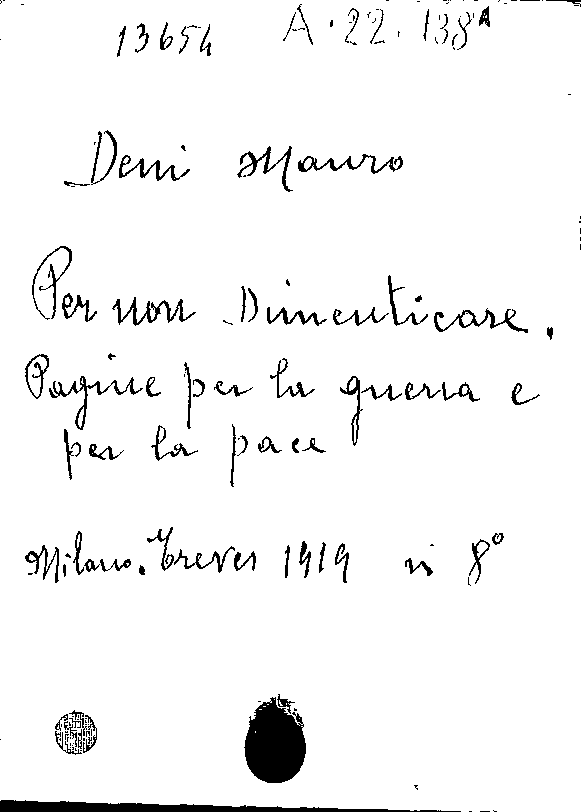 13654 A.22.138A
Deni Mauro
Per non Dimenticare.
Pagine per la guerra e
per la pace
Milano. Treves 1919 in 8°